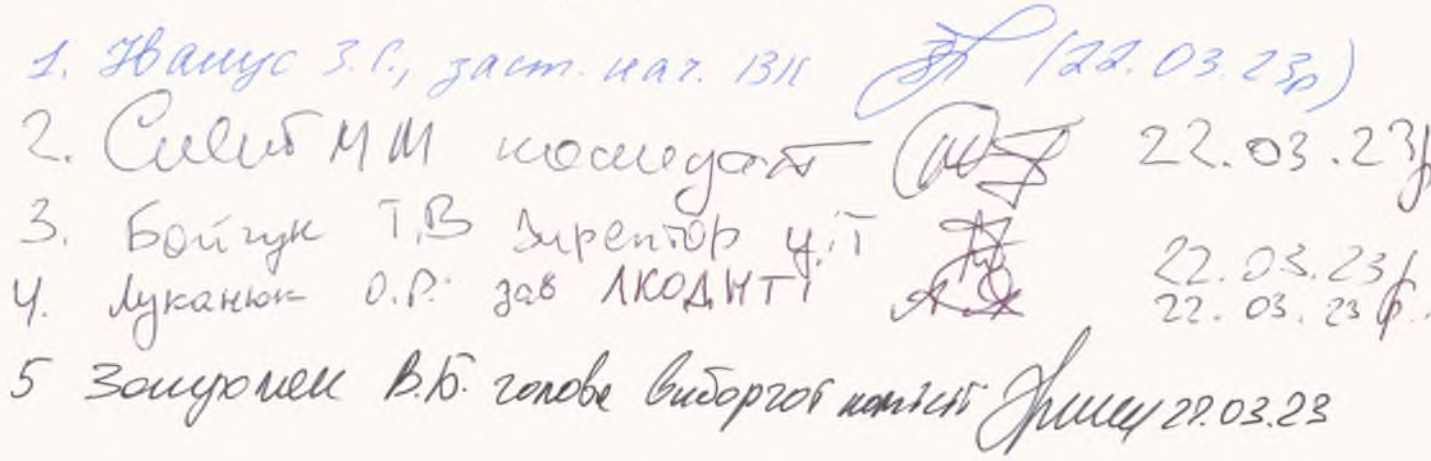 1. Іванус З.Г., заст. нач. ВК (22.03.23р)
2. ММ 22.03.23р
3. Бойчук Т.В директор 22.03.23р
4. Луканюк О.Р. зав ЛКОДНТІ 22.03.23р.
5 В.Б. голова виборчої комісії 22.03.23